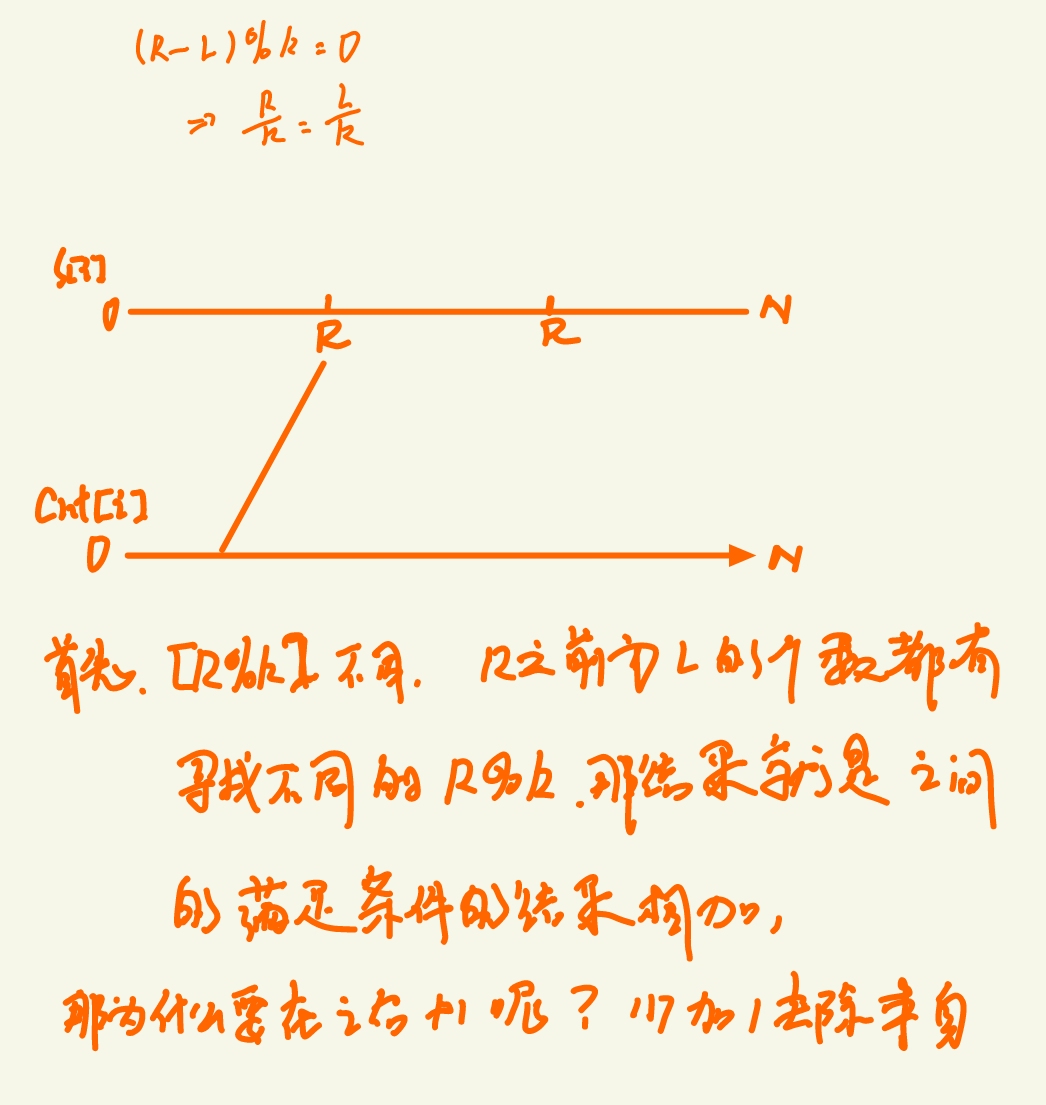 (R-L)%k=0
⇒ R/k = L/k
S[i]
0 R R N
Cnt[i]
0 N
首先. [R%k] 不同. R之前 L的个数都有
寻找不同的R%k.那结果就是之间
的满足条件的结果相加,
那为什么要在之后+1呢? 少加1去除本身